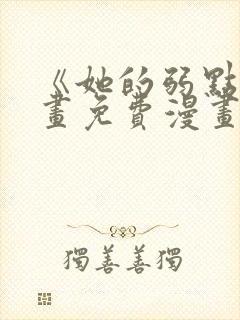 《她的弱點
畫免費漫畫
獨善善獨